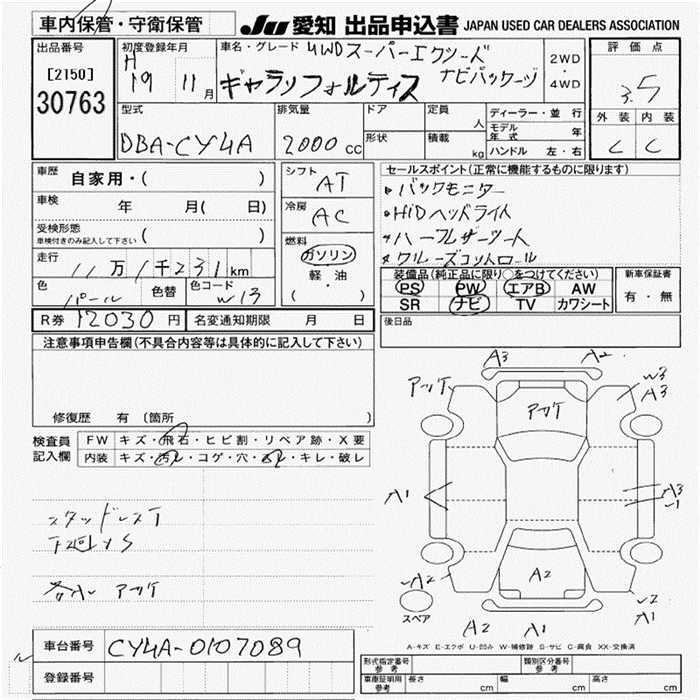 車内保管・守衛保管
JU 愛知 出品申込書 JAPAN USED CAR DEALERS ASSOCIATION
出品番号
[2150]
30763
初度登録年月
H
19 11 月
車名・グレード 4WDスーパーエクシード
ギャランフォルティス ナビパッケージ
2WD
・
4WD
評価点
3.5
外装 内装
C C
型式
DBA-CY4A
排気量
2000 cc
ドア
形状
定員
人
積載
kg
ディーラー・並行
モデル年式 年
ハンドル 左・右
車歴
自家用・( )
車検
年 月( 日)
受検形態
車検付きのみ記入して下さい ( )
走行
11万1千231km
色
パール
色替
色コード
W13
シフト
AT
冷房
AC
燃料
ガソリン
軽・油
( )
セールスポイント(正常に機能するものに限ります)
・バックモニター
・HIDヘッドライト
・ハーフレザーシート
・クルーズコントロール
装備品(純正品に限り○をつけてください)
PS PW エアB AW
SR ナビ TV カワシート
新車保証書
有・無
後日品
R券 12030 円
名変通知期限 月 日
注意事項申告欄(不具合内容等は具体的に記入して下さい)
修復歴 有 〔箇所 〕
検査員
記入欄
FW キズ・飛石・ヒビ割・リペア跡・X要
内装 キズ・汚レ・コゲ・穴・スレ・キレ・破レ
スタッドレスT
下廻りS
各小 アツケ
A3 A2
アツケ
アツケ
W3
A3
A1
A3
A2
A2
A2
A1
A1
スペア
A-キズ E-エクボ U-凹み W-補修跡 S-サビ C-腐食 XX-交換済
車台番号
CY4A-0107089
登録番号
型式指定番号
参考
類別区分番号
参考
車庫証明用
参考
長さ cm
幅 cm
高さ cm